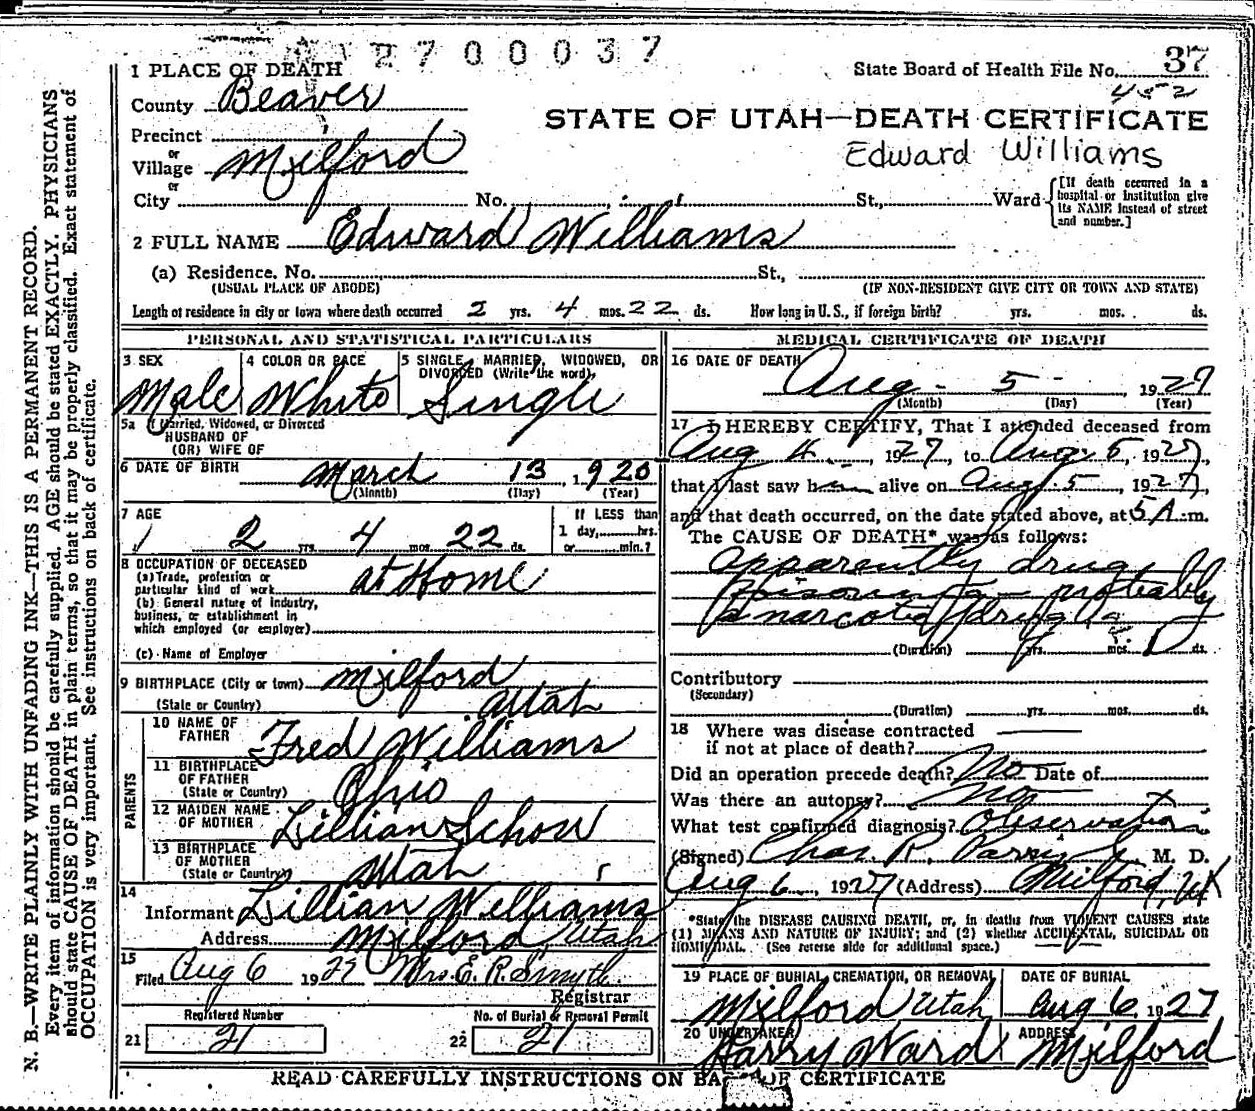 2700037
1 PLACE OF DEATH
State Board of Health File No. 37
452
County Beaver
STATE OF UTAH—DEATH CERTIFICATE
Precinct
or
Edward Williams
Village Milford
or
City No. St., Ward
[If death occurred in a hospital or institution give its NAME instead of street and number.]
2 FULL NAME Edward Williams
(a) Residence. No. St.,
(USUAL PLACE OF ABODE) (IF NON-RESIDENT GIVE CITY OR TOWN AND STATE)
Length of residence in city or town where death occurred 2 yrs. 4 mos. 22 ds. How long in U.S., if foreign birth? yrs. mos. ds.
PERSONAL AND STATISTICAL PARTICULARS
3 SEX 4 COLOR OR RACE 5 SINGLE, MARRIED, WIDOWED, OR DIVORCED (Write the word)
Male White Single
5a If Married, Widowed, or Divorced
HUSBAND OF
(OR) WIFE OF
6 DATE OF BIRTH March 13, 1920
(Month) (Day) (Year)
7 AGE 2 yrs. 4 mos. 22 ds.
If LESS than
1 day, hrs.
or min.?
8 OCCUPATION OF DECEASED
(a) Trade, profession or
particular kind of work at Home
(b) General nature of industry,
business, or establishment in
which employed (or employer)
(c) Name of Employer
9 BIRTHPLACE (City or town) Milford
(State or Country) Utah
PARENTS
10 NAME OF FATHER Fred Williams
11 BIRTHPLACE OF FATHER
(State or Country) Ohio
12 MAIDEN NAME OF MOTHER Lillian Schow
13 BIRTHPLACE OF MOTHER
(State or Country) Utah
14
Informant Lillian Williams
Address Milford Utah
15
Filed Aug 6 1927 Mrs. E. R. Smyth
Registrar
Registered Number No. of Burial or Removal Permit
21 21 22 21
MEDICAL CERTIFICATE OF DEATH
16 DATE OF DEATH Aug - 5 - , 1927
(Month) (Day) (Year)
17 I HEREBY CERTIFY, That I attended deceased from
Aug 4, 1927, to Aug 5, 1927,
that I last saw him alive on Aug 5, 1927,
and that death occurred, on the date stated above, at 5 A. m.
The CAUSE OF DEATH* was as follows:
apparently drug
poisoning - probably
a narcotic drug
(Duration) yrs. mos. 1 ds.
Contributory
(Secondary)
(Duration) yrs. mos. ds.
18 Where was disease contracted
if not at place of death?
Did an operation precede death? No Date of
Was there an autopsy? No
What test confirmed diagnosis? Observation
(Signed) Chas. R. Parrish M. D.
Aug 6, 1927 (Address) Milford, Ut
*State the DISEASE CAUSING DEATH, or, in deaths from VIOLENT CAUSES state
(1) MEANS AND NATURE OF INJURY; and (2) whether ACCIDENTAL, SUICIDAL OR
HOMICIDAL. (See reverse side for additional space.)
19 PLACE OF BURIAL, CREMATION, OR REMOVAL DATE OF BURIAL
Milford Utah Aug 6, 1927
20 UNDERTAKER ADDRESS
Harry Ward Milford
READ CAREFULLY INSTRUCTIONS ON BACK OF CERTIFICATE
N. B.—WRITE PLAINLY WITH UNFADING INK—THIS IS A PERMANENT RECORD.
Every item of information should be carefully supplied. AGE should be stated EXACTLY. PHYSICIANS
should state CAUSE OF DEATH in plain terms, so that it may be properly classified. Exact statement of
OCCUPATION is very important. See instructions on back of certificate.